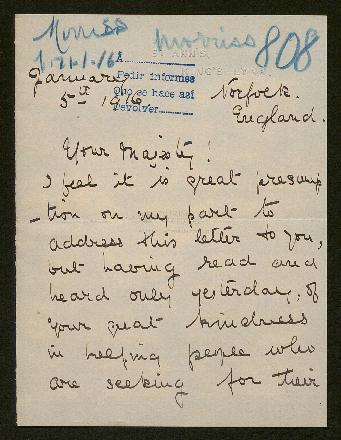 Morriss
Morriss
808
A
ST ANNS,
KING'S LYNN.
Pedir informes
Que se hace así
Devolver
January
5th 1916.
Norfolk.
England.
Your Majesty!
I feel it is great presump
-tion on my part to
address this letter to you,
but having read and
heard only yesterday, of
your great kindness
in helping people who
are seeking for their